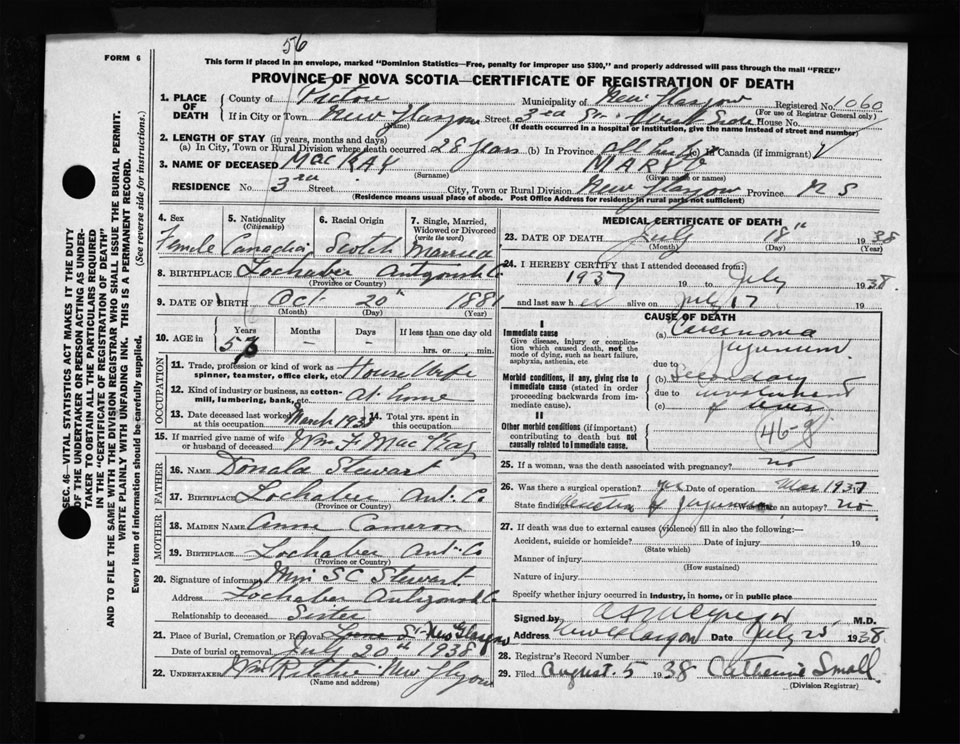 56
FORM 6
This form if placed in an envelope, marked "Dominion Statistics—Free, penalty for improper use $300," and properly addressed will pass through the mail "FREE"
PROVINCE OF NOVA SCOTIA—CERTIFICATE OF REGISTRATION OF DEATH
1. PLACE OF DEATH County of Pictou Municipality of New Glasgow Registered No. 1060
(For use of Registrar General only)
If in City or Town New Glasgow Street 3rd St. West Side House No.
(Name) (If death occurred in a hospital or institution, give the name instead of street and number)
2. LENGTH OF STAY (in years, months and days)
(a) In City, Town or Rural Division where death occurred 28 years (b) In Province All her life (c) in Canada (if immigrant)
3. NAME OF DECEASED MacKAY MARY
(Surname) (Given name or names)
RESIDENCE No. 3rd Street City, Town or Rural Division New Glasgow Province N S
(Residence means usual place of abode. Post Office Address for residents in rural parts not sufficient)
SEC. 46—VITAL STATISTICS ACT MAKES IT THE DUTY
OF THE UNDERTAKER OR PERSON ACTING AS UNDER-
TAKER TO OBTAIN ALL THE PARTICULARS REQUIRED
IN THE "CERTIFICATE OF REGISTRATION OF DEATH"
AND TO FILE THE SAME WITH THE DIVISION REGISTRAR WHO SHALL ISSUE THE BURIAL PERMIT.
WRITE PLAINLY WITH UNFADING INK. THIS IS A PERMANENT RECORD.
Every item of information should be carefully supplied. (See reverse side for instructions.)
4. Sex 5. Nationality (Citizenship) 6. Racial Origin 7. Single, Married, Widowed or Divorced (write the word)
Female Canadian Scotch Married
8. BIRTHPLACE Lochaber Antigonish Co
(Province or Country)
9. DATE OF BIRTH Oct 20th 1881
(Month) (Day) (Year)
10. AGE in Years Months Days If less than one day old
56 – – hrs. or min.
OCCUPATION
11. Trade, profession or kind of work as spinner, teamster, office clerk, etc. House Wife
12. Kind of industry or business, as cotton-mill, lumbering, bank, etc. at home
13. Date deceased last worked at this occupation March 1938 14. Total yrs. spent in this occupation
15. If married give name of wife or husband of deceased Wm F. MacKay
FATHER
16. NAME Donald Stewart
17. BIRTHPLACE Lochaber Ant. Co
(Province or Country)
MOTHER
18. MAIDEN NAME Anne Cameron
19. BIRTHPLACE Lochaber Ant. Co
(Province or Country)
20. Signature of informant S C Stewart
Address Lochaber Antigonish Co
Relationship to deceased Sister
21. Place of Burial, Cremation or Removal New Glasgow
Date of burial or removal July 20th 1938
22. UNDERTAKER Wm Ritchie New Glasgow
(Name and address)
MEDICAL CERTIFICATE OF DEATH
23. DATE OF DEATH July 18th 1938
(Month) (Day) (Year)
24. I HEREBY CERTIFY that I attended deceased from:
1937 19 to July 1938.
and last saw her alive on July 17 19
CAUSE OF DEATH
I
Immediate cause
Give disease, injury or complication which caused death, not the mode of dying, such as heart failure, asphyxia, asthenia, etc
(a) Carcinoma
Jejunum.
due to
Morbid conditions, if any, giving rise to immediate cause (stated in order proceeding backwards from immediate cause).
(b) Secondary
due to involvement
(c) of liver
II
Other morbid conditions (if important) contributing to death but not causally related to Immediate cause.
46-g
25. If a woman, was the death associated with pregnancy? no
26. Was there a surgical operation? yes Date of operation Mar 1937
State findings of jejunum Was there an autopsy? no.
27. If death was due to external causes (violence) fill in also the following:—
Accident, suicide or homicide? Date of injury 19
(State which)
Manner of injury
(How sustained)
Nature of injury
Specify whether injury occurred in industry, in home, or in public place
Signed by M.D.
Address New Glasgow Date July 25 1938
28. Registrar's Record Number
29. Filed August 5 1938 Catherine Small
(Division Registrar)